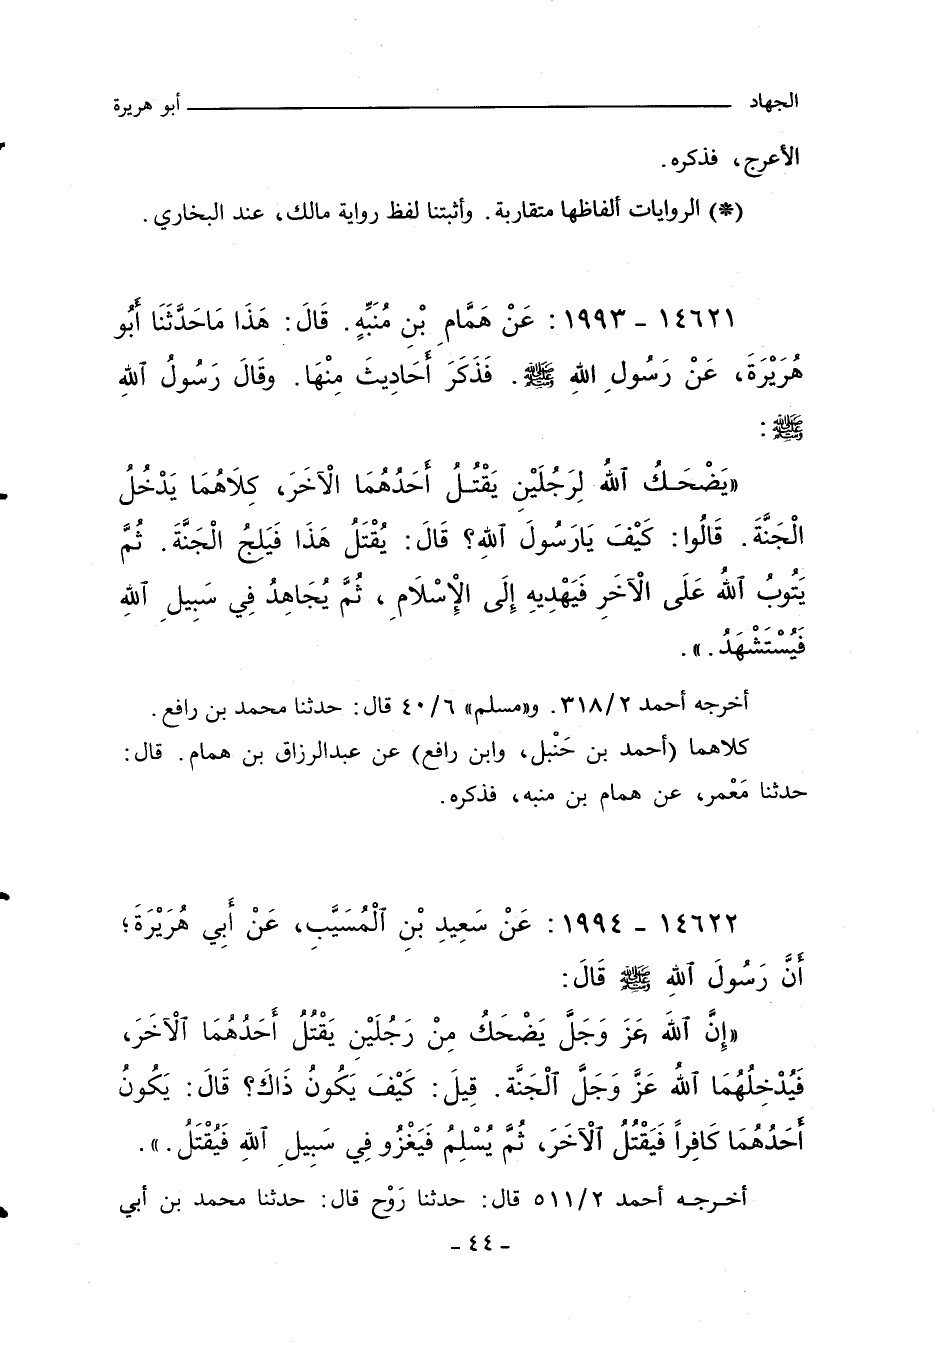 الجهاد ــــــــ أبو هريرة
الأعرج، فذكره.
(*) الروايات ألفاظها متقاربة. وأثبتنا لفظ رواية مالك، عند البخاري.
١٤٦٢١ - ١٩٩٣: عَنْ هَمَّامِ بْنِ مُنَبِّهٍ. قَالَ: هَذَا مَاحَدَّثَنَا أَبُو
هُرَيْرَةَ، عَنْ رَسُولِ اللهِ ﷺ. فَذَكَرَ أَحَادِيثَ مِنْهَا. وقَالَ رَسُولُ ٱللهِ
ﷺ:
«يَضْحَكُ ٱللهُ لِرَجُلَيْنِ يَقْتُلُ أَحَدُهُمَا الْآخَرَ، كِلَاهُمَا يَدْخُلُ
الْجَنَّةَ. قَالُوا: كَيْفَ يَارَسُولَ ٱللهِ؟ قَالَ: يُقْتَلُ هَذَا فَيَلِجُ الْجَنَّةَ. ثُمَّ
يَتُوبُ ٱللهُ عَلَى الْآخَرِ فَيَهْدِيهِ إِلَى الْإِسْلَامِ، ثُمَّ يُجَاهِدُ فِي سَبِيلِ ٱللهِ
فَيُسْتَشْهَدُ.».
أخرجه أحمد ٣١٨/٢. و«مسلم» ٤٠/٦ قال: حدثنا محمد بن رافع.
كلاهما (أحمد بن حَنْبل، وابن رافع) عن عبدالرزاق بن همام. قال:
حدثنا مَعْمر، عن همام بن منبه، فذكره.
١٤٦٢٢ - ١٩٩٤: عَنْ سَعِيدِ بْنِ ٱلْمُسَيَّبِ، عَنْ أَبِي هُرَيْرَةَ؛
أَنَّ رَسُولَ ٱللهِ ﷺ قَالَ:
«إِنَّ ٱللهَ عَزَ وَجَلَّ يَضْحَكُ مِنْ رَجُلَيْنِ يَقْتُلُ أَحَدُهُمَا ٱلْآخَرَ،
فَيُدْخِلُهُمَا ٱللهُ عَزَّ وَجَلَّ ٱلْجَنَّةَ. قِيلَ: كَيْفَ يَكُونُ ذَاكَ؟ قَالَ: يَكُونُ
أَحَدُهُمَا كَافِراً فَيَقْتُلُ ٱلْآخَرَ، ثُمَّ يُسْلِمُ فَيَغْزُو فِي سَبِيلِ ٱللهِ فَيُقْتَلُ.».
أخرجه أحمد ٥١١/٢ قال: حدثنا رَوْح قال: حدثنا محمد بن أبي
- ٤٤ -